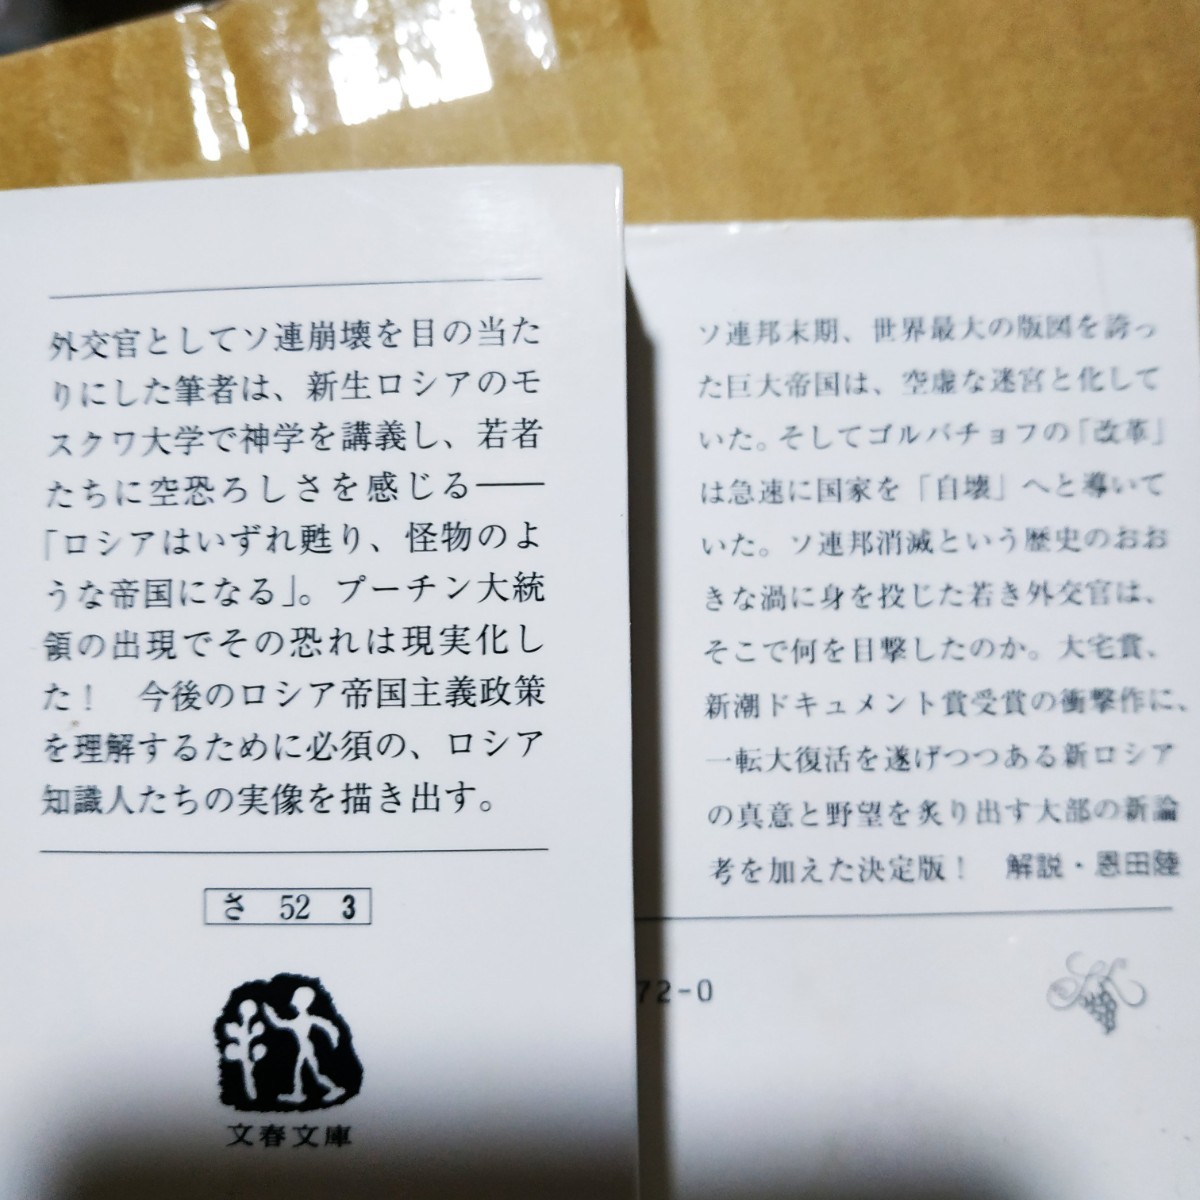 外交官としてソ連崩壊を目の当た
りにした筆者は、新生ロシアのモ
スクワ大学で神学を講義し、若者
たちに空恐ろしさを感じる——
「ロシアはいずれ甦り、怪物のよ
うな帝国になる」。プーチン大統
領の出現でその恐れは現実化し
た！　今後のロシア帝国主義政策
を理解するために必須の、ロシア
知識人たちの実像を描き出す。
さ 52 3
文春文庫
ソ連邦末期、世界最大の版図を誇っ
た巨大帝国は、空虚な迷宮と化して
いた。そしてゴルバチョフの「改革」
は急速に国家を「自壊」へと導いて
いた。ソ連邦消滅という歴史のおお
きな渦に身を投じた若き外交官は、
そこで何を目撃したのか。大宅賞、
新潮ドキュメント賞受賞の衝撃作に、
一転大復活を遂げつつある新ロシア
の真意と野望を炙り出す大部の新論
考を加えた決定版！　解説・恩田陸
72-0